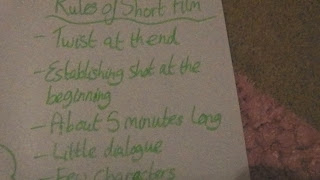 Rules of Short Film
- Twist at the end
- Establishing shot at the
beginning
- About 5 minutes long
- Little dialogue
- Few characters